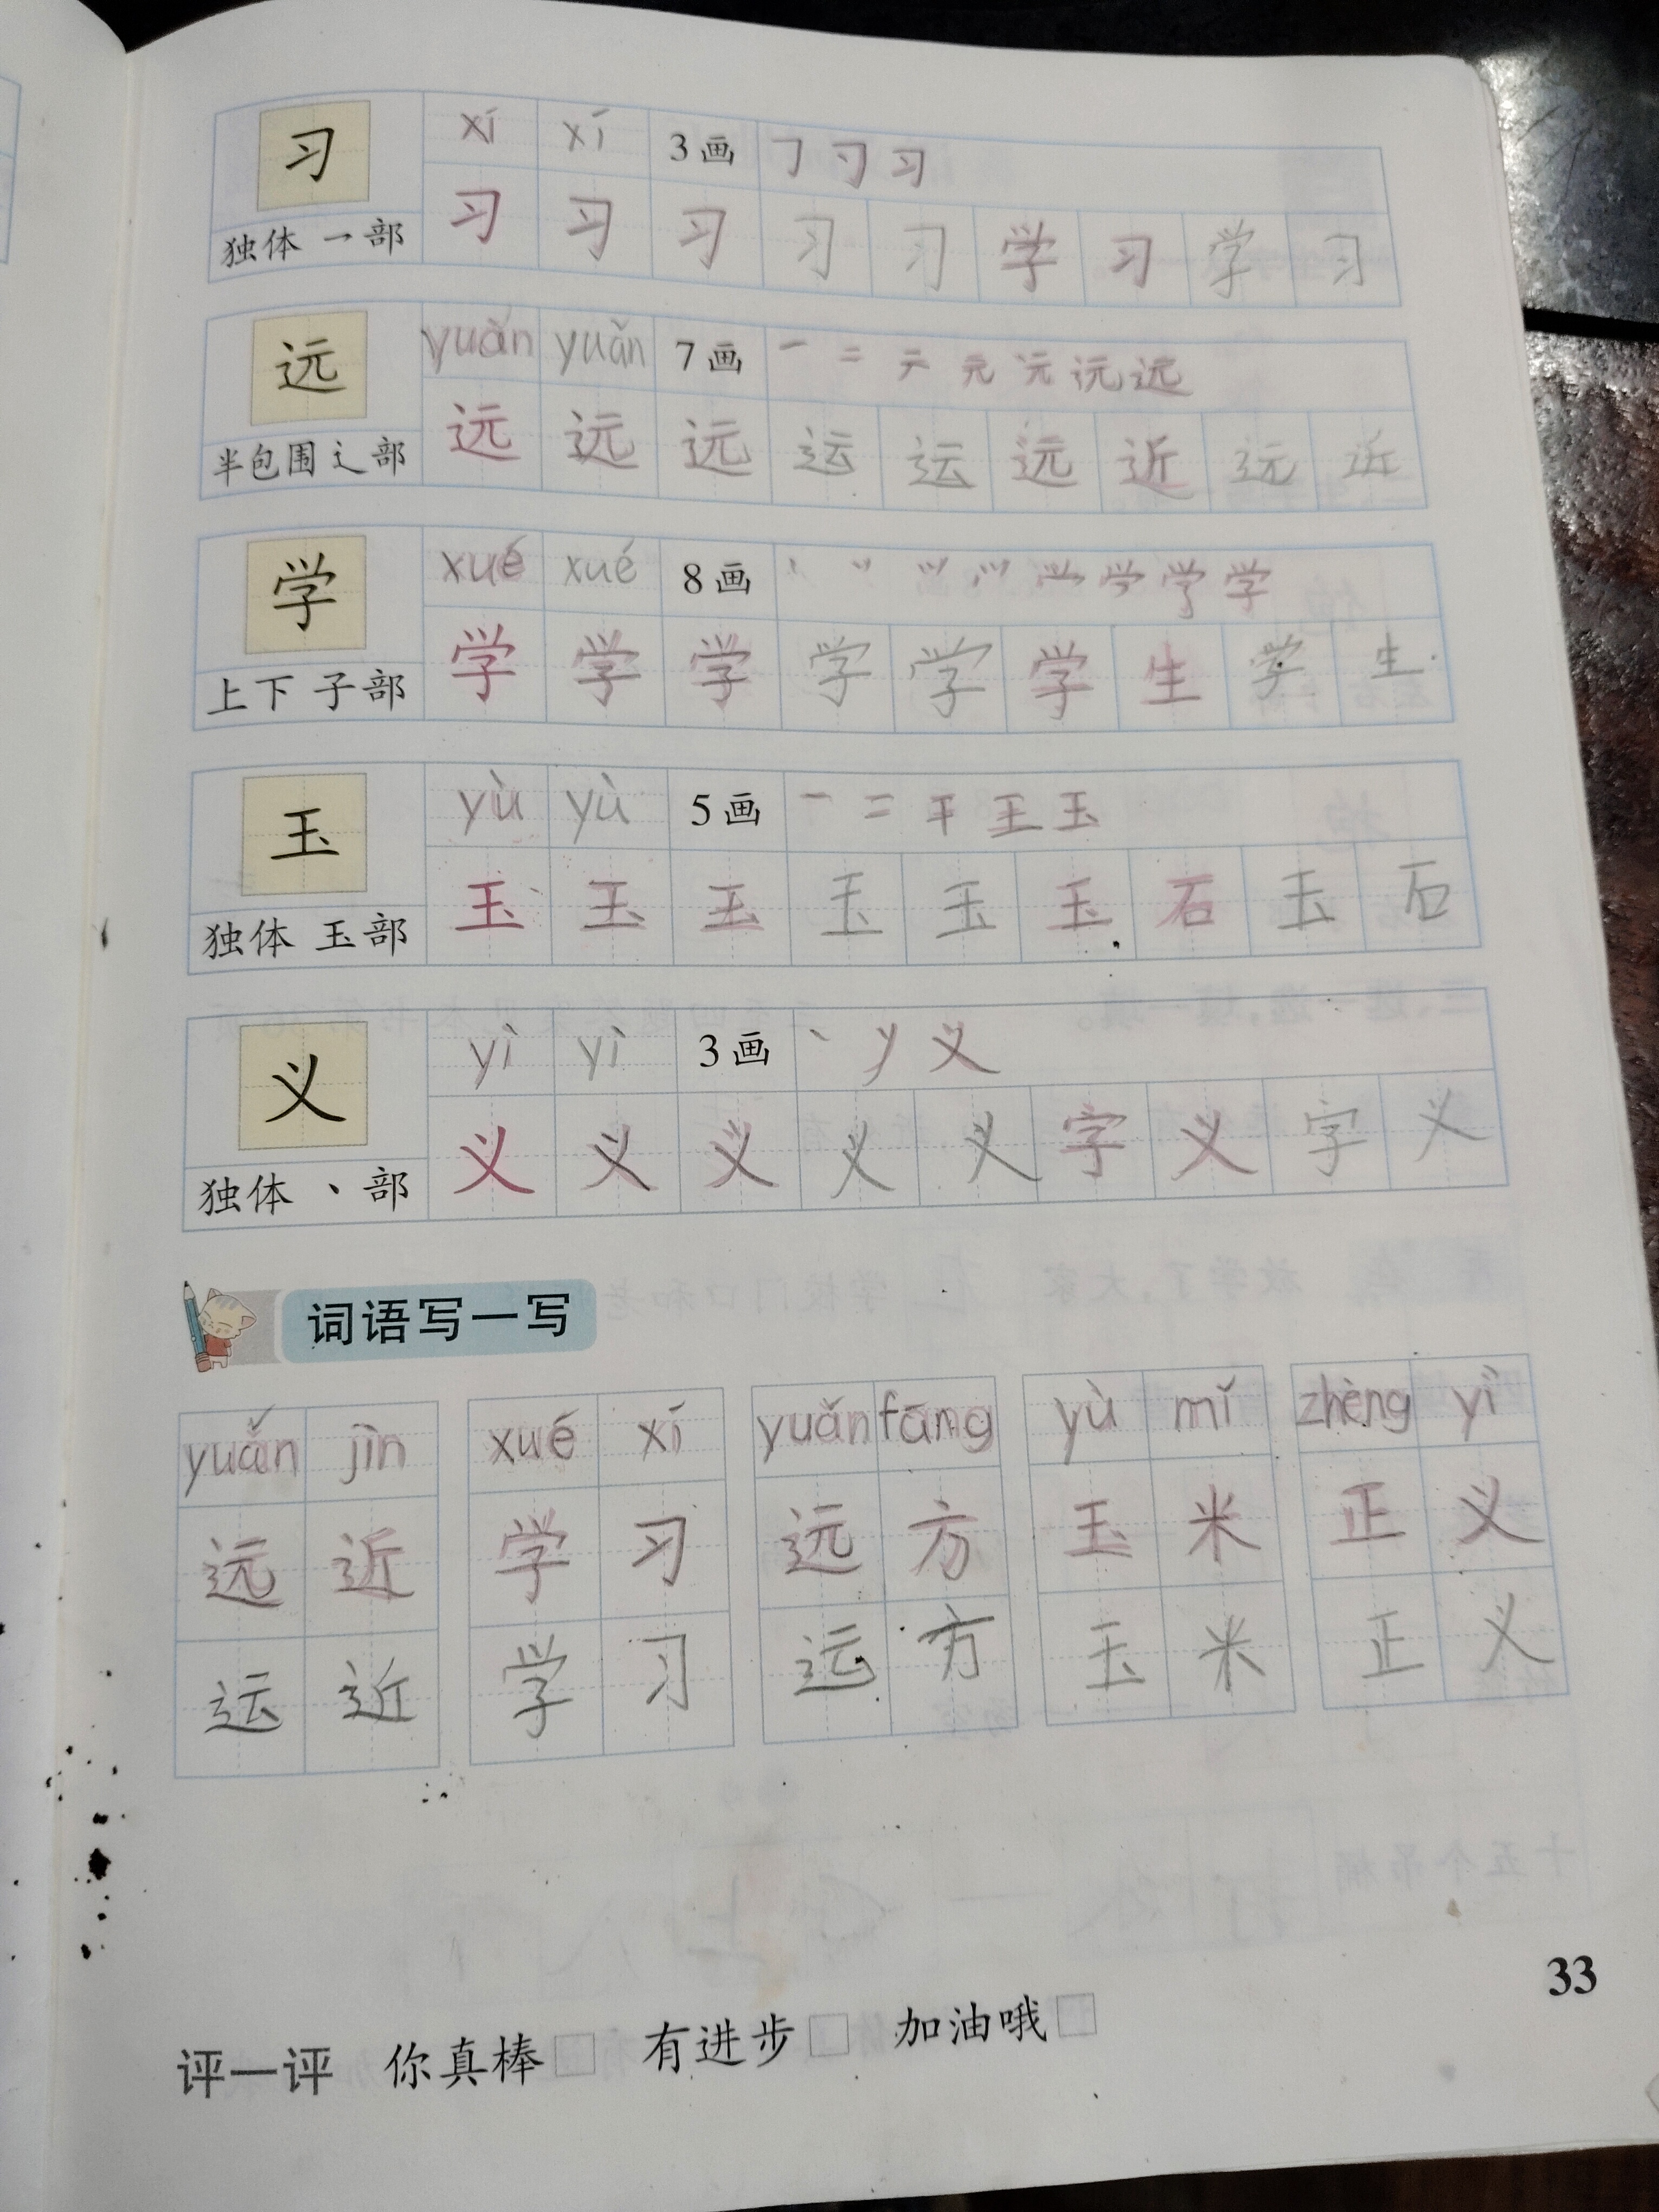 习 xí xí 3画 ㇆ 习 习
独体 乛部 习 习 习 习 习 学 习 学 习
远 yuǎn yuǎn 7画 一 二 テ 元 元 远 远
半包围 辶部 远 远 远 运 运 远 近 远 近
学 xué xué 8画 学 学 学
上下 子部 学 学 学 学 学 学 生 学 生
玉 yù yù 5画 一 二 干 王 玉
独体 玉部 玉 玉 玉 玉 玉 玉 石 玉 石
义 yì yì 3画 丶 义
独体 丶部 义 义 义 义 义 字 义 字 义
词语写一写
yuǎn jìn xué xí yuǎn fāng yù mǐ zhèng yì
远 近 学 习 远 方 玉 米 正 义
运 近 学 习 远 方 玉 米 正 义
33
评一评 你真棒□ 有进步□ 加油哦□